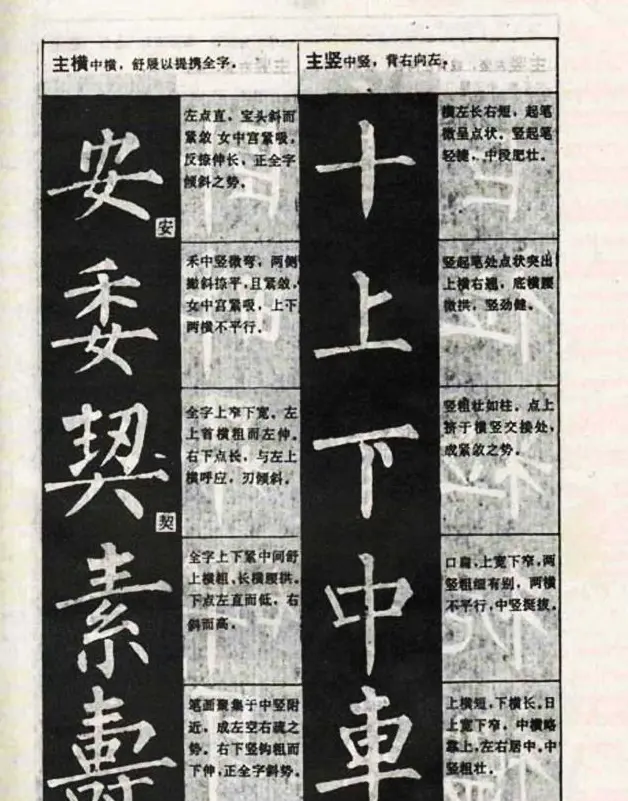 主横中横，舒展以提携全字。
安
左点直，宝头斜而
紧敛 女中宫紧吸，
反捺伸长，正全字
倾斜之势。
安
委
禾中竖微弯，两侧
撇斜捺平，且紧敛，
女中宫紧吸，上下
两横不平行。
契
全字上窄下宽，左
上首横粗而左伸。
右下点长，与左上
横呼应，刃倾斜。
契
素
全字上下紧中间舒
上横粗，长横腰拱。
下点左直而低，右
斜而高。
壽
笔画聚集于中竖附
近，成左空右疏之
势。右下竖钩粗而
下伸，正全字斜势。
主竖中竖，背右向左。
十
横左长右短，起笔
微呈点状。竖起笔
轻捷，中段肥壮。
上
竖起笔处点状突出
上横右翘，底横腰
微拱，竖劲健。
下
竖粗壮如柱，点上
挤于横竖交接处，
成紧敛之势。
中
口扁，上宽下窄，两
竖粗细有别，两横
不平行，中竖挺拔。
車
上横短，下横长，日
上宽下窄，中横略
靠上，左右居中，中
竖粗壮。